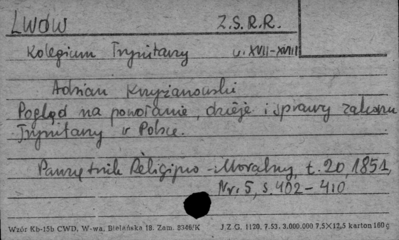 Lwów Z.S.R.R.
Kolegium Trynitarzy w. XVII-XVIII
Adrian Krzyżanowski
Pogląd na powołanie, dzieje i sprawy zakonu
Trynitarzy w Polsce.
Pamiętnik Religijno-Moralny, t. 20, 1851,
Nr. 5, s. 402-410
Wzór Kb-15b CWD, W-wa, Bielańska 18. Zam. 3346/K J.Z.G. 1120. 7.53. 3.000.000 7,5×12,5 karton 180 g